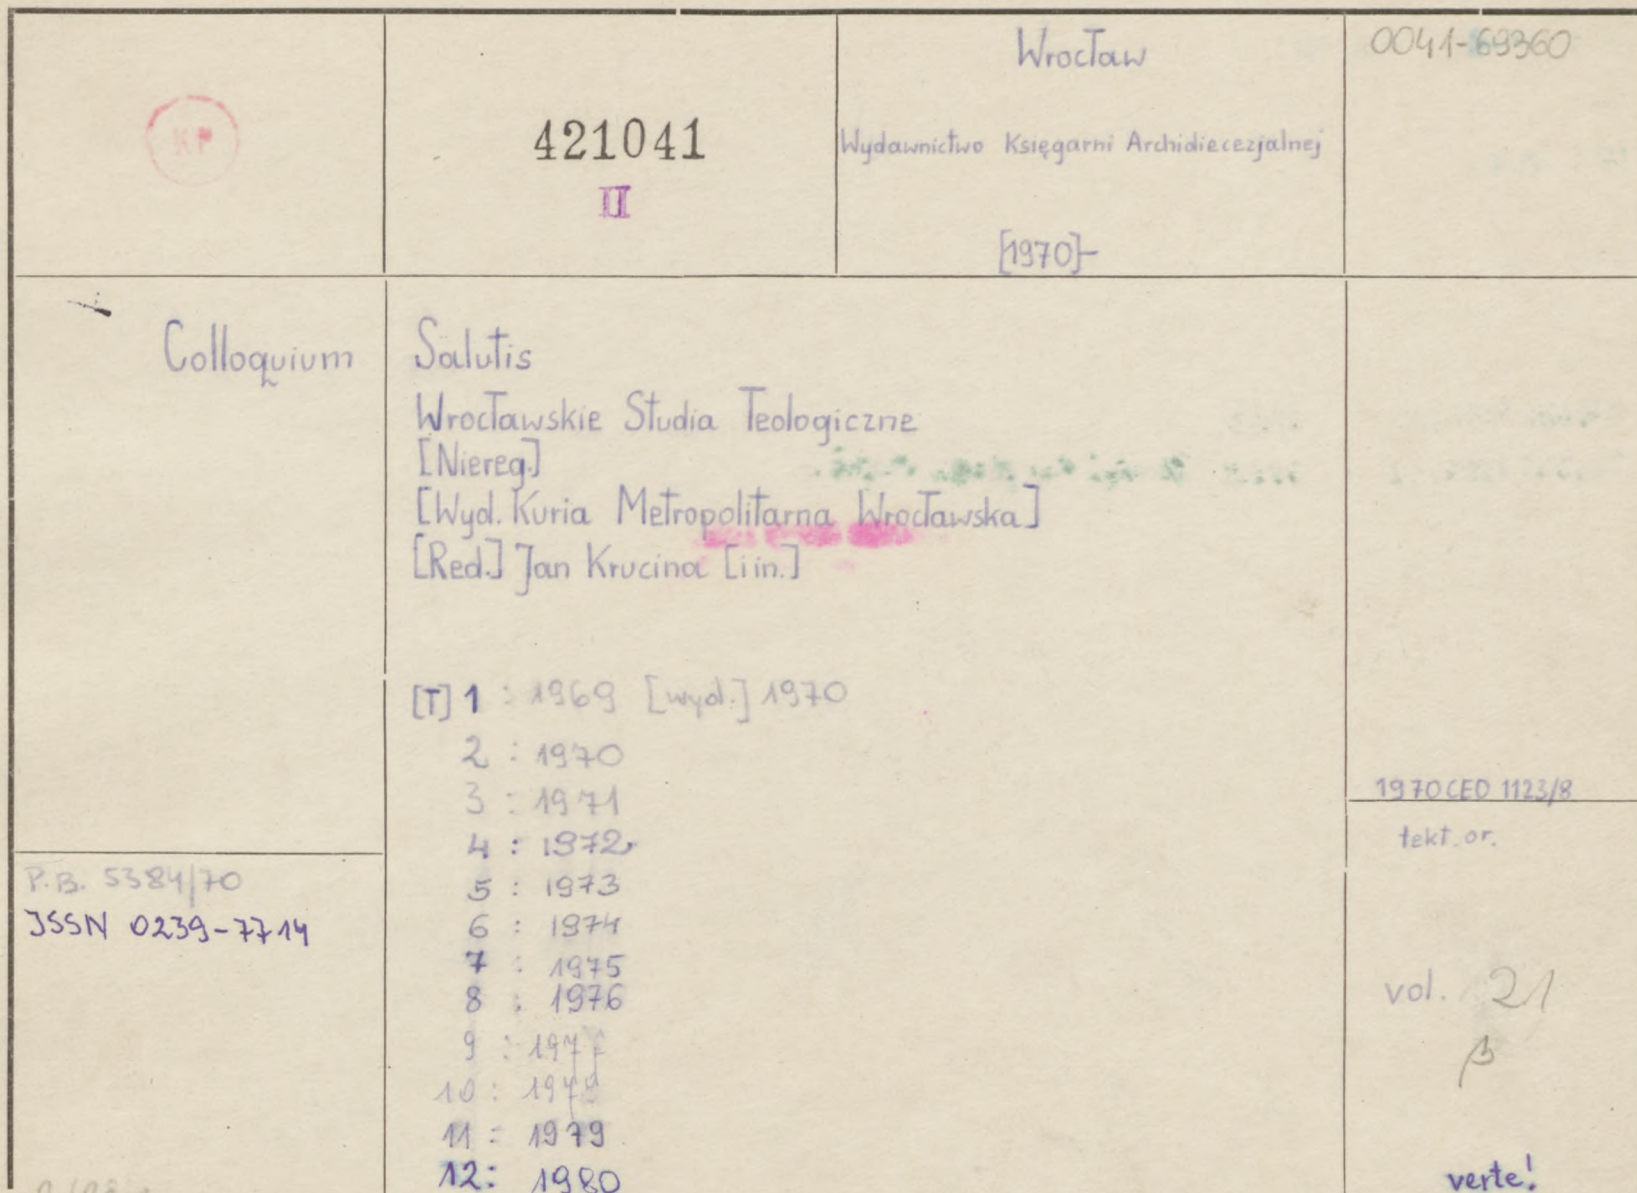 Wrocław
0041-69360
KP
421041
II
Wydawnictwo Księgarni Archidiecezjalnej
[1970]-
Colloquium Salutis
Wrocławskie Studia Teologiczne
[Niereg.]
[Wyd. Kuria Metropolitarna Wrocławska]
[Red.] Jan Krucina [i in.]
[T] 1 : 1969 [wyd.] 1970
2 : 1970
3 : 1971
4 : 1972
5 : 1973
6 : 1974
7 : 1975
8 : 1976
9 : 1977
10 : 1978
11 : 1979
12 : 1980
P.B. 5384/70
ISSN 0239-7714
1970 CEO 1123/8
tekt. or.
vol. 21
β
verte!